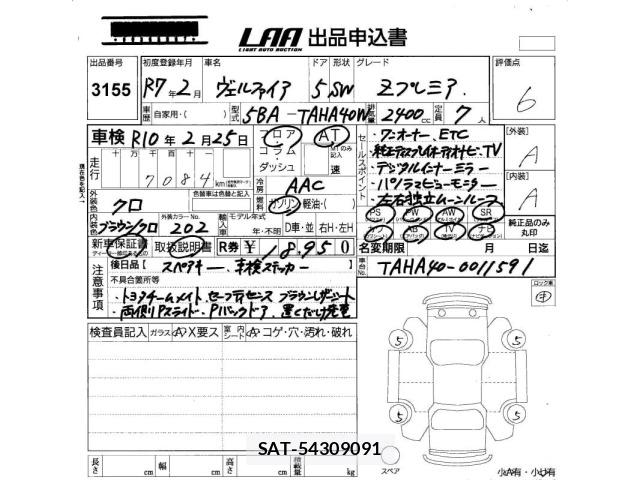 LAA 出品申込書
LIGHT AUTO AUCTION
出品番号 初度登録年月 車名 ドア 形状 グレード 評価点
3155 R7年2月 ヴェルファイア 5 SW Zプレミア 6
車歴 自家用・( ) 型式 5BA-TAHA40W 排気量 2400cc 定員 7人
車検 R10年2月25日 フロア コラム ダッシュ AT MTのみ記入 速
セールスポイント ・ワンオーナー ETC
・純正ディスプレイオーディオナビ・TV
・デジタルインナーミラー
・パノラマビューモニター
・左右独立ムーンルーフ
[外装] A
[内装] A
現在色を記入
走行 十万 万 千 百 十 一
7084 km
冷房 AAC
外装色 クロ 色替車は色替と記入 燃料 ガソリン 軽油・( )
PS PW AW SR
純正品のみ丸印
内装色 ブラウンクロ 外装カラーNo. 202 輸入車 モデル年式 年・不明 D車・並 右H・左H
AB TV ナビ
新車保証書 取扱説明書 R券 ¥18,950
名変期限 月 日迄
注意事項 後日品 スペアキー、車検ステッカー
車台No. TAHA40-0011591
不具合箇所等
・トヨタチームメイト、セーフティセンス ブラウンレザーシート
・両側Pスライド・Pバックドア、置くだけ充電
ロック車
検査員記入 ガラス(A)X要ス 室内シート (A)コゲ・穴・汚れ・破れ
5 5
5 5
SAT-54309091
長さ cm 幅 cm 高さ cm 積載量 kg スペア 小A有・小U有